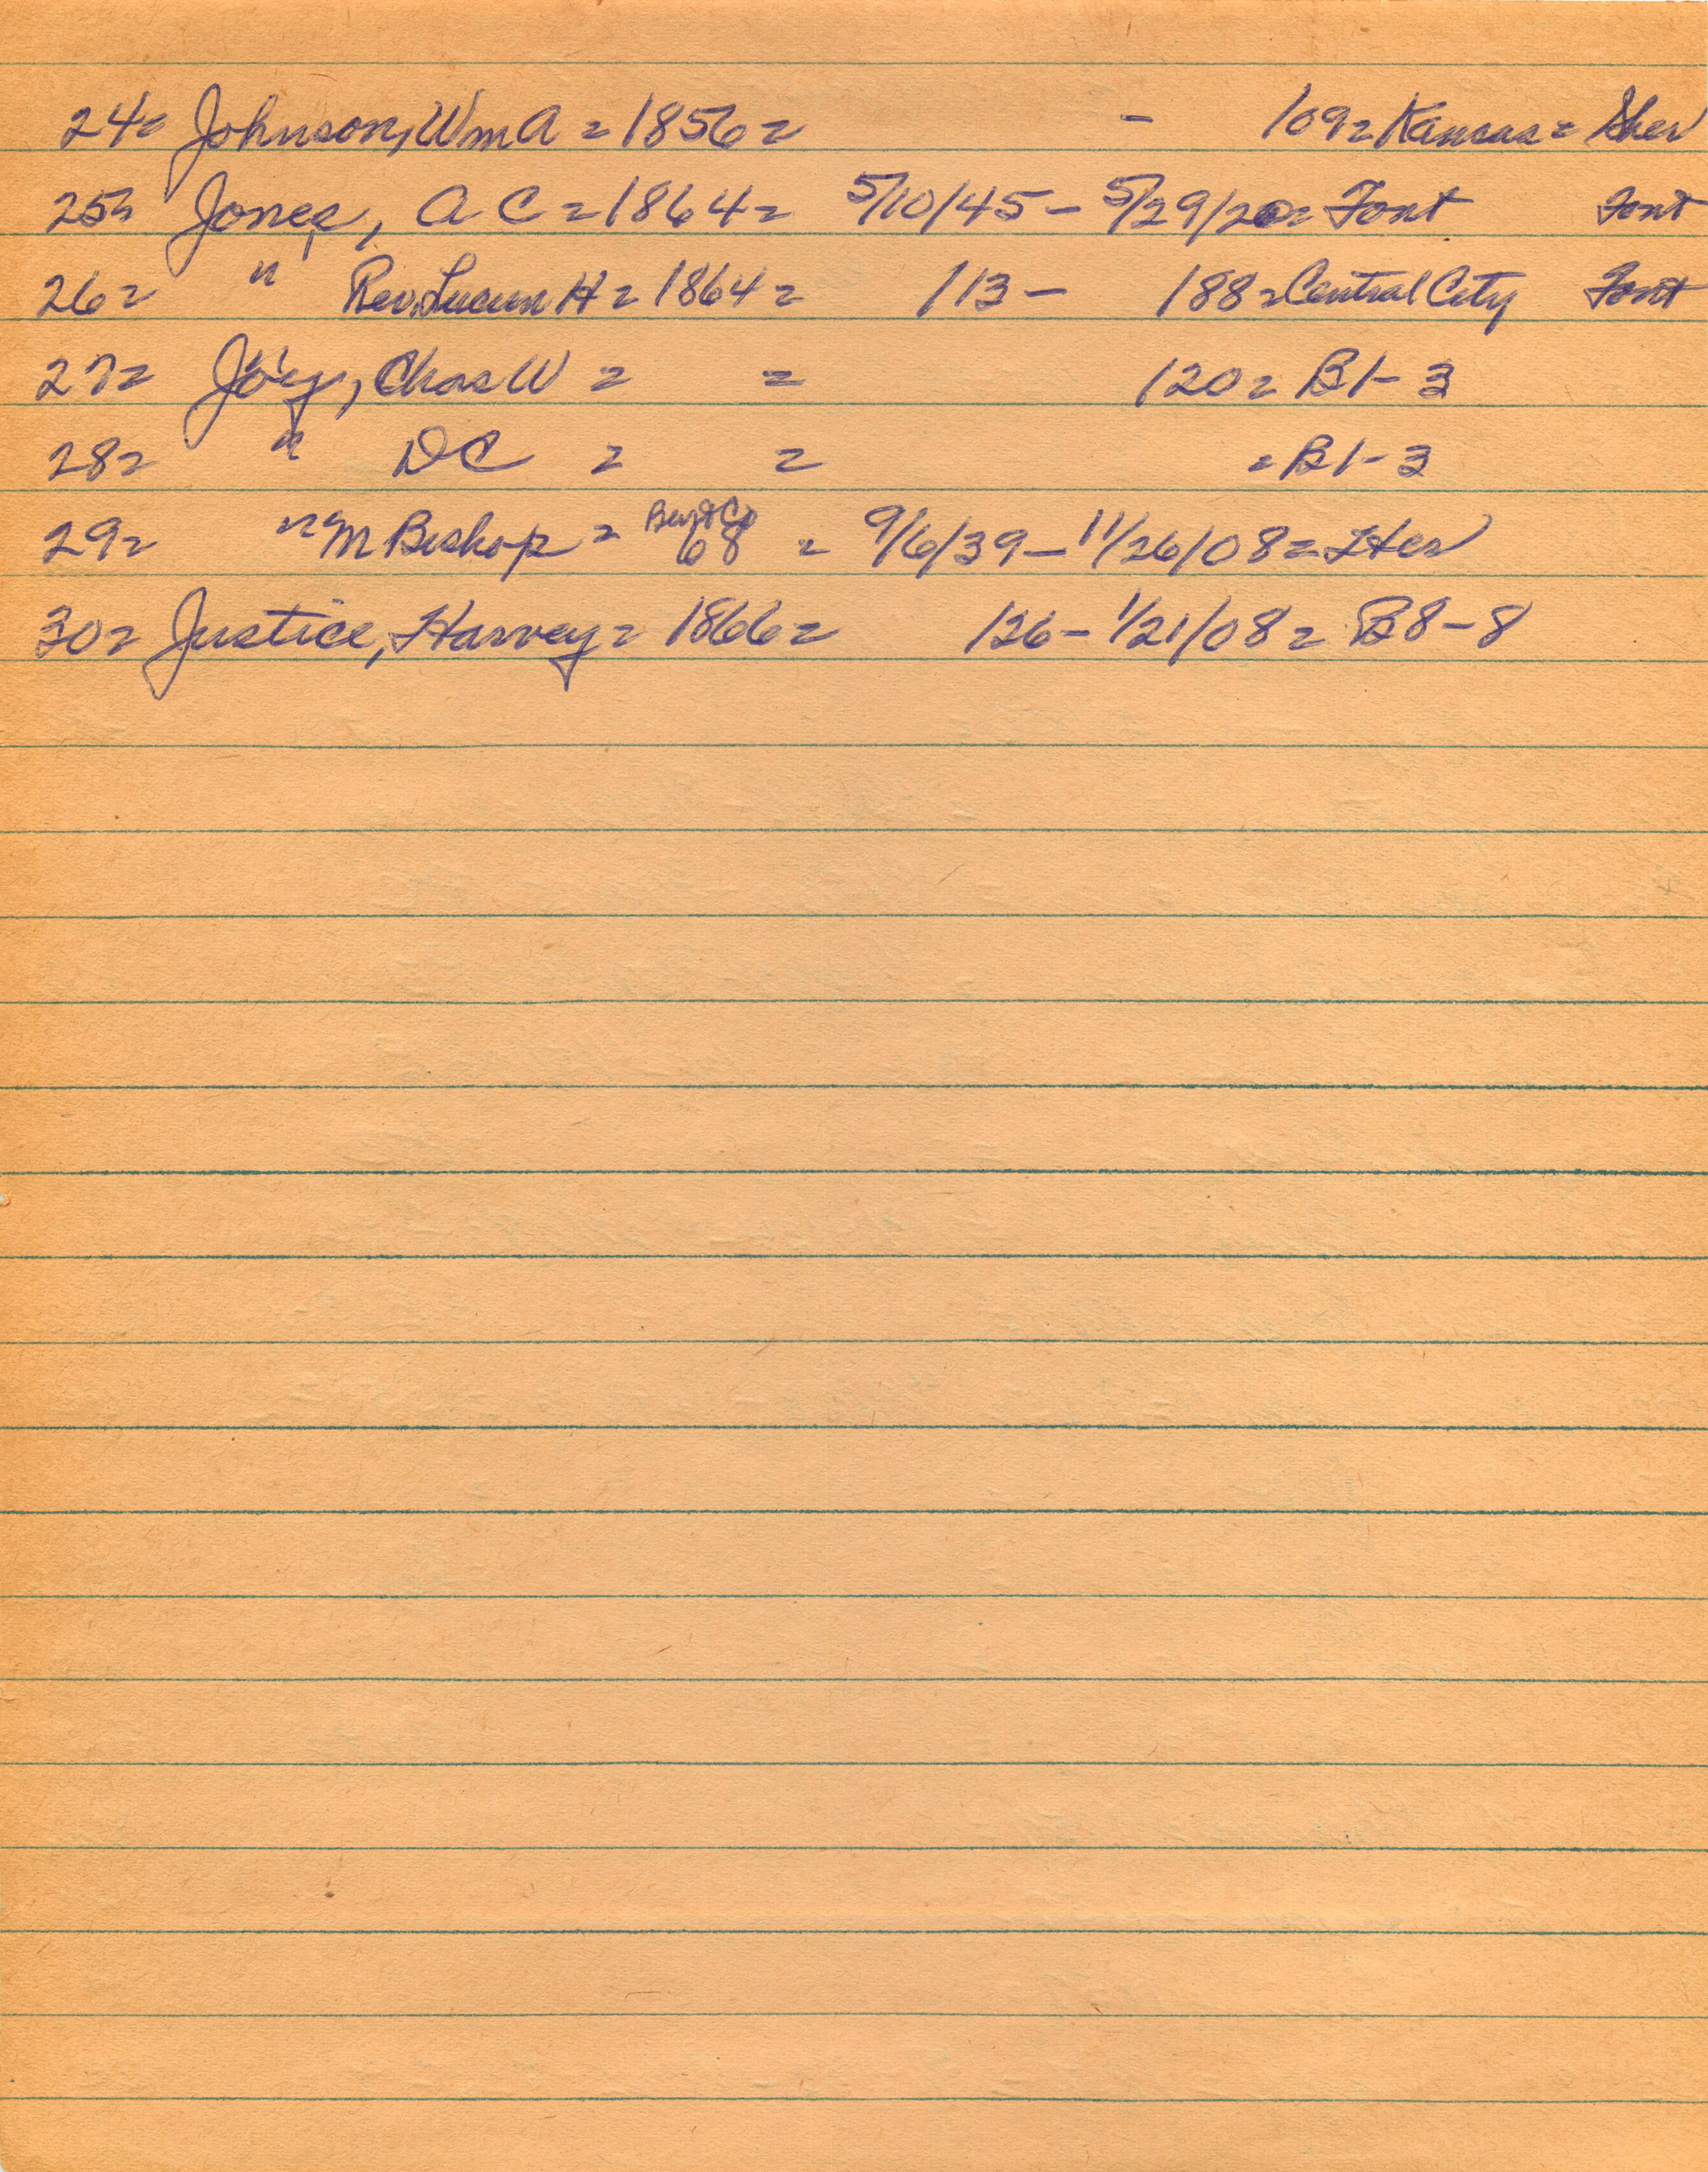 24= Johnson, Wm A = 1856 = - 109 = Kansas = Sher
25= Jones, A C = 1864 = 5/10/45 - 5/29/20 = Font Font
26= " Rev. Lucien H = 1864 = 113 - 188 = Central City Font
27= Joy, Chas W = = 120 = B1-3
28= " D C = = = B1-3
29= " M Bishop = 68 = 9/6/39 - 11/26/08 = Her
30= Justice, Harvey = 1866 = 126 - 1/21/08 = B8-8